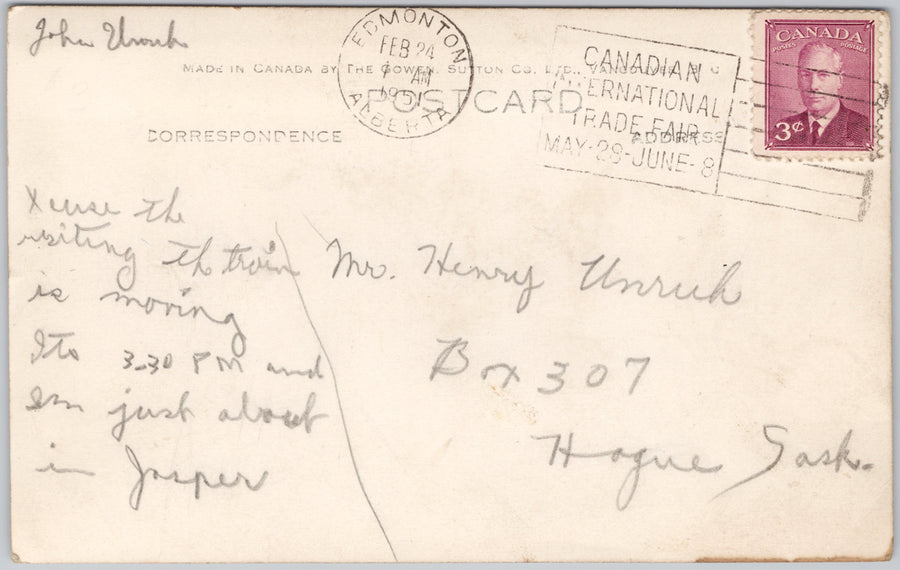 John Unruh
EDMONTON
FEB 24
AM
1951
ALBERTA
CANADIAN
INTERNATIONAL
TRADE FAIR
MAY-28-JUNE-8
CANADA
POSTES POSTAGE
3¢
MADE IN CANADA BY THE GOWEN, SUTTON CO. LTD., VANCOUVER, B.C.
POSTCARD
CORRESPONDENCE
ADDRESS
Xcuse the
writing th train
is moving
Its 3-30 PM and
Im just about
in Jasper
Mr. Henry Unruh
Box 307
Hague Sask.